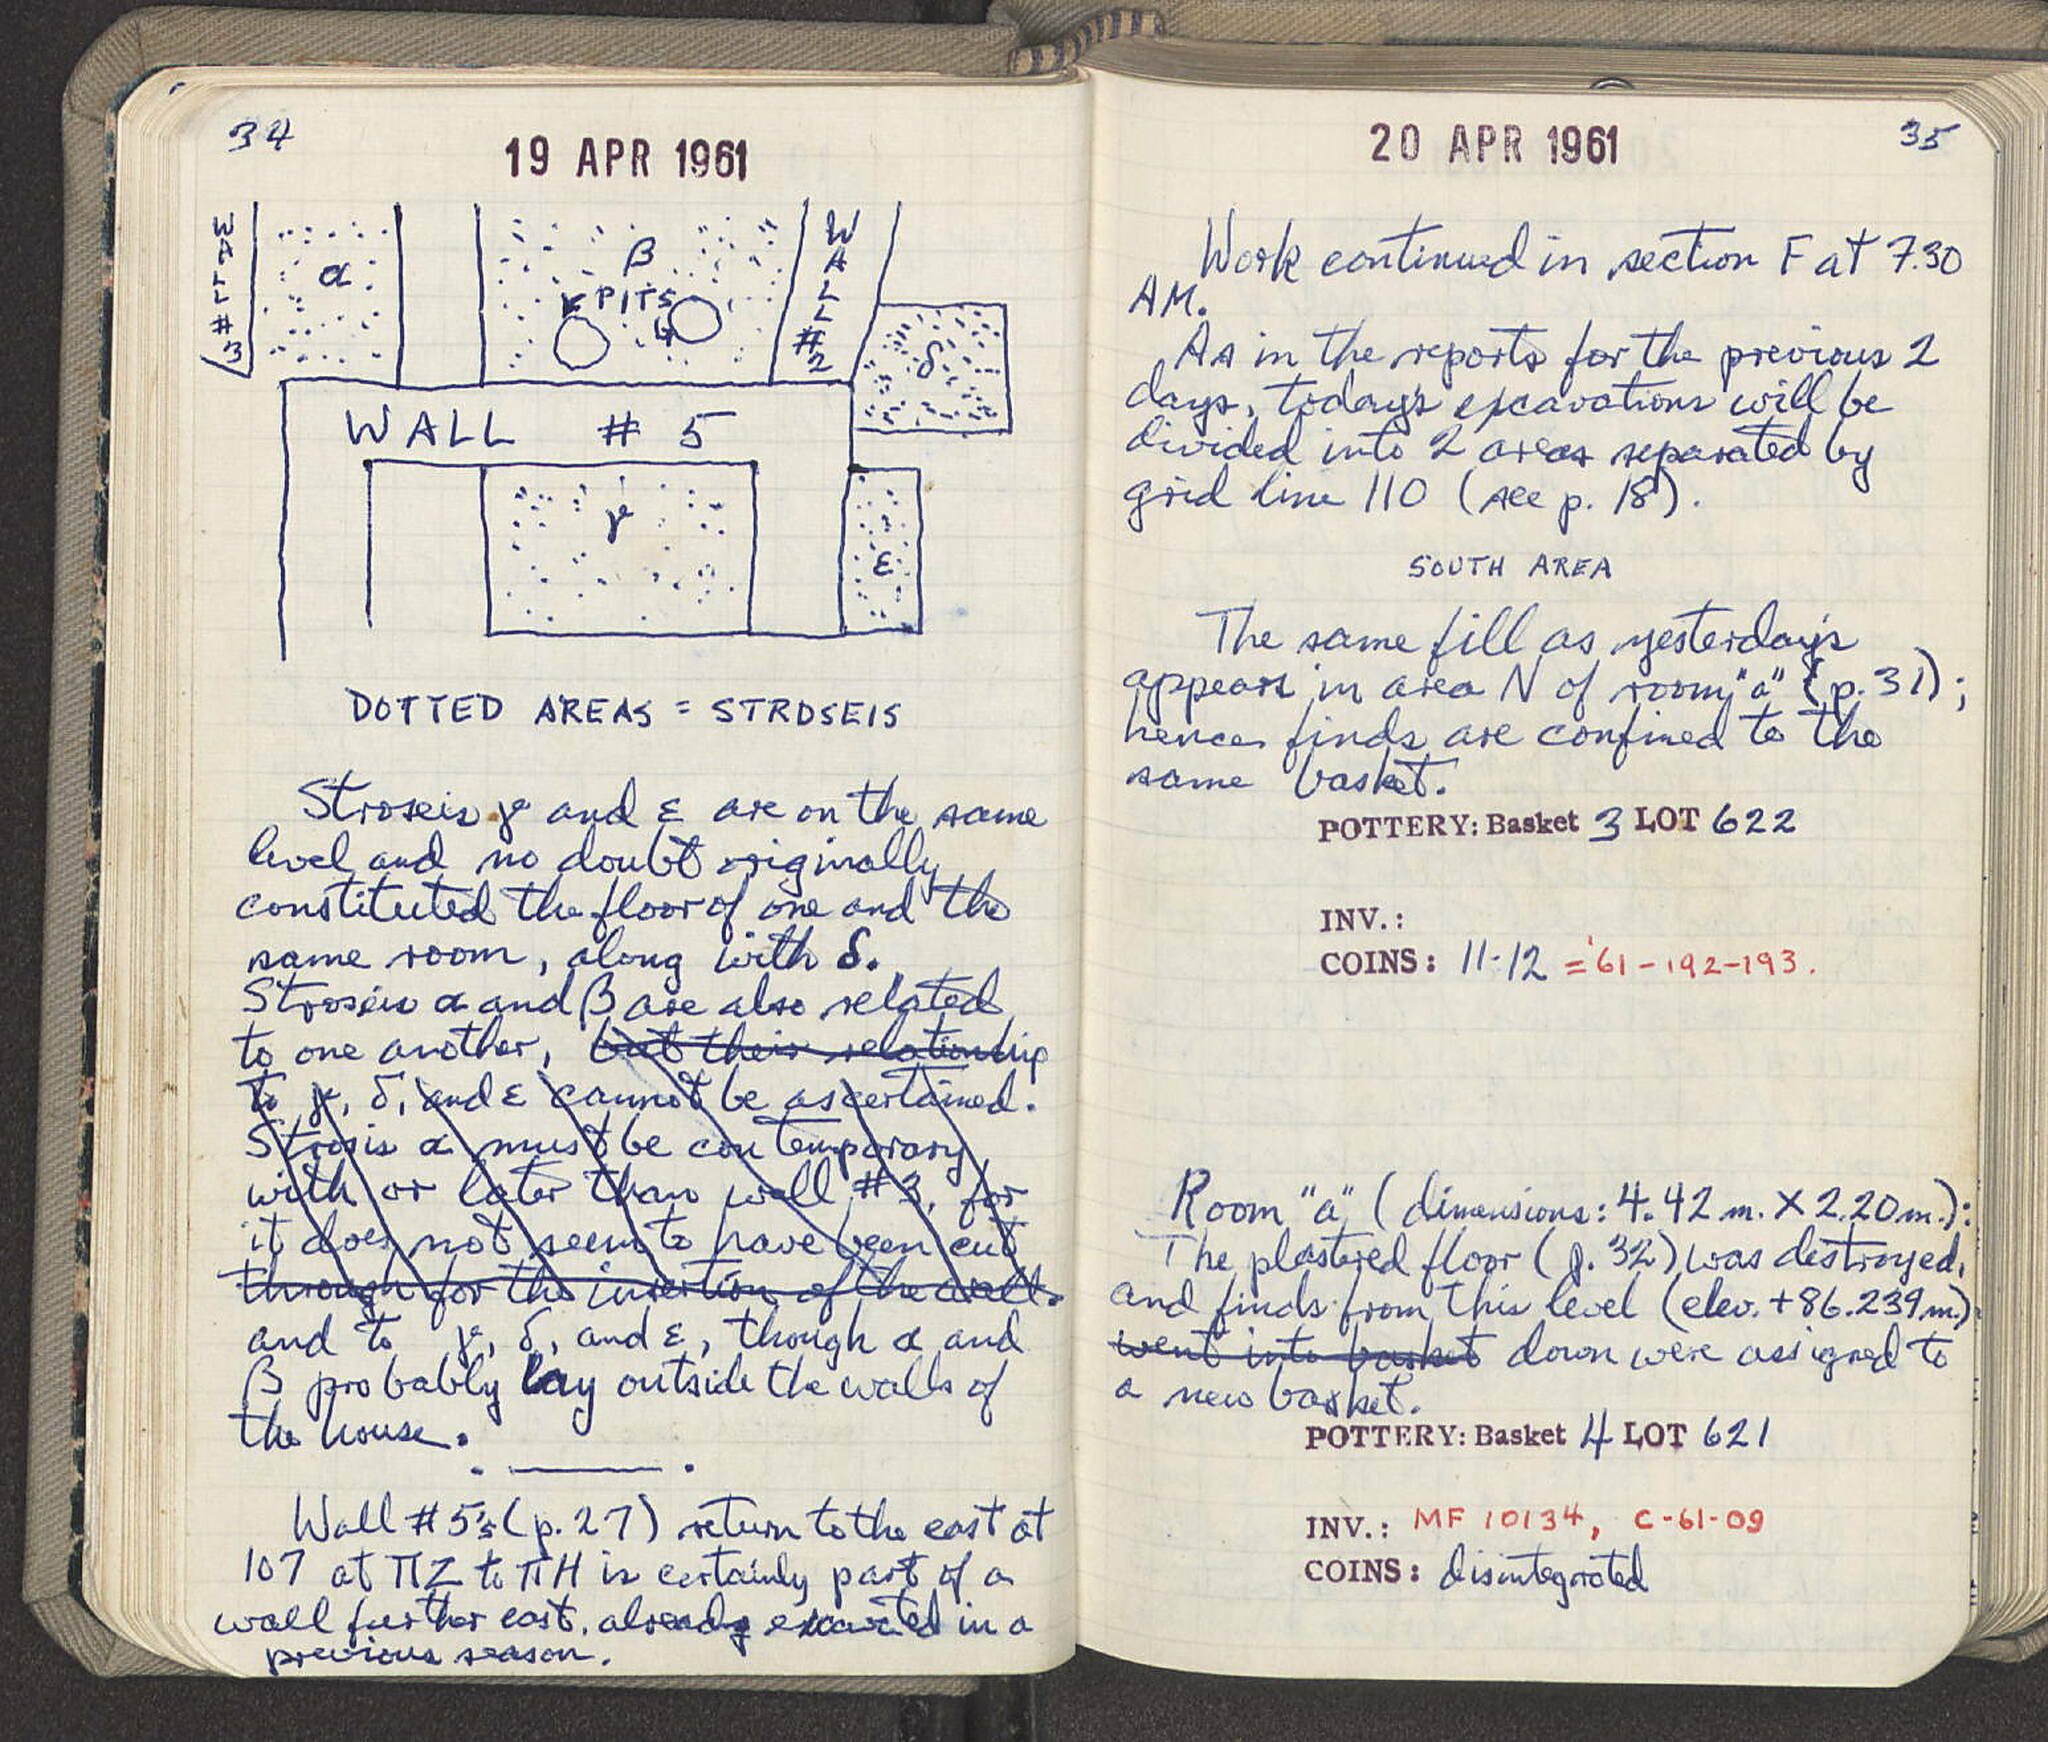 34
19 APR 1961
WALL #3
α
β
PITS
WALL #2
δ
WALL # 5
γ
ε
DOTTED AREAS = STROSEIS
Stroseis γ and ε are on the same
level and no doubt originally
constituted the floor of one and the
same room, along with δ.
Stroseis α and β are also related
to one another, but their relationship
to γ, δ, and ε cannot be ascertained.
Strosis α must be contemporary
with or later than wall #3, for
it does not seem to have been cut
through for the insertion of the wall.
and to γ, δ, and ε, though α and
β probably lay outside the walls of
the house.
Wall #5's (p. 27) return to the east at
107 at ΠZ to ΠH is certainly part of a
wall further east, already excavated in a
previous season.
20 APR 1961
35
Work continued in section F at 7.30
AM.
As in the reports for the previous 2
days, today's excavations will be
divided into 2 areas separated by
grid line 110 (see p. 18).
SOUTH AREA
The same fill as yesterday's
appears in area N of room "a" (p. 31);
hence finds are confined to the
same basket.
POTTERY: Basket 3 LOT 622
INV.:
COINS: 11-12 = '61-192-193.
Room "a" (dimensions: 4.42 m. X 2.20 m.):
The plastered floor (p. 32) was destroyed,
and finds from this level (elev. +86.239 m.)
went into basket down were assigned to
a new basket.
POTTERY: Basket 4 LOT 621
INV.: MF 10134, C-61-09
COINS: disintegrated